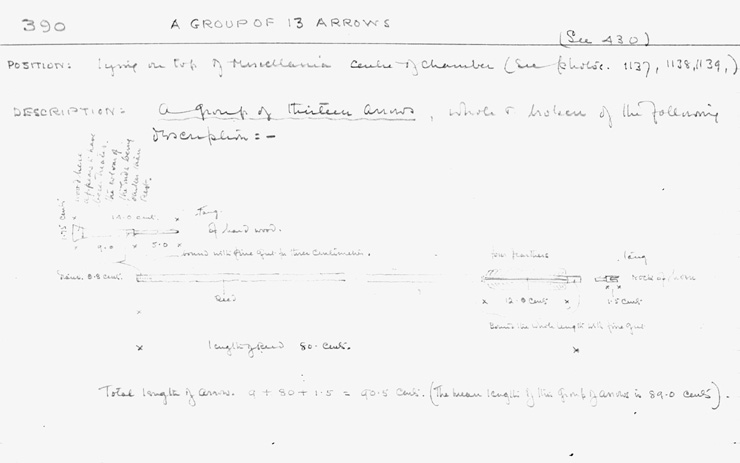 390
A GROUP OF 13 ARROWS
(See 430)
POSITION: Lying on top of Miscellania centre of chamber (See photos. 1137, 1138, 1139,)
DESCRIPTION: A group of thirteen arrows, whole & broken of the following
description: -
wood here
appears to have
been
14.0 cent.
1.75 cent
Tang
of hard wood.
9.0
5.0
bound with fine gut for three centimetres.
Diam. 0.8 cent.
Reed
feathers
Tang
Nock of
12.0 cent
1.5 cent
Bound the whole length with fine gut
length of Reed 80. cent.
Total length of arrow. 9 + 80 + 1.5 = 90.5 cent. (The mean length of the group of arrows is 89.0 cent).